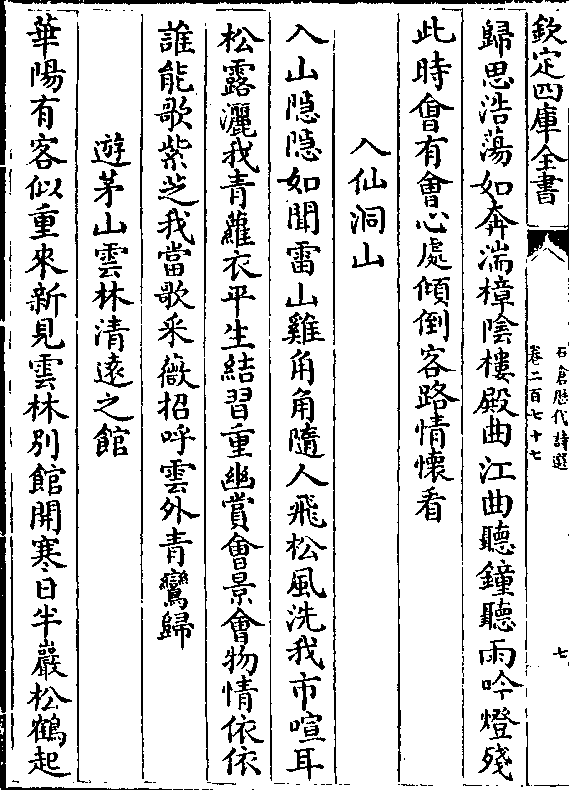 欽定四庫全書
石倉歷代詩選
卷二百七十七
七
歸思浩蕩如奔湍樟陰樓殿曲江曲聽鐘聽雨吟燈殘
此時㑹有㑹心處傾倒客路情懷看
入仙洞山
入山隱隱如聞雷山雞角角隨人飛松風洗我市喧耳
松露灑我青蘿衣平生結習重幽賞會景會物情依依
誰能歌紫芝我當歌采薇招呼雲外青鸞歸
遊茅山雲林清遠之館
華陽有客似重來新見雲林别館開寒日半巖松鶴起